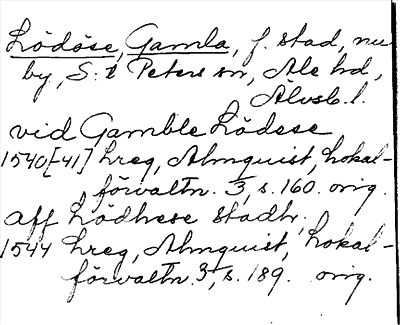 Lödöse, Gamla, f. stad, nu
by, S:t Peters sn, Ale hd,
Älvsb. l.
vid Gamble Lödese
1540[-41] hreg, Almquist, Lokal-
förvaltn. 3, s. 160. orig.
aff Lödhese stadh,
1544 hreg, Almquist, Lokal-
förvaltn. 3, s. 189. orig.